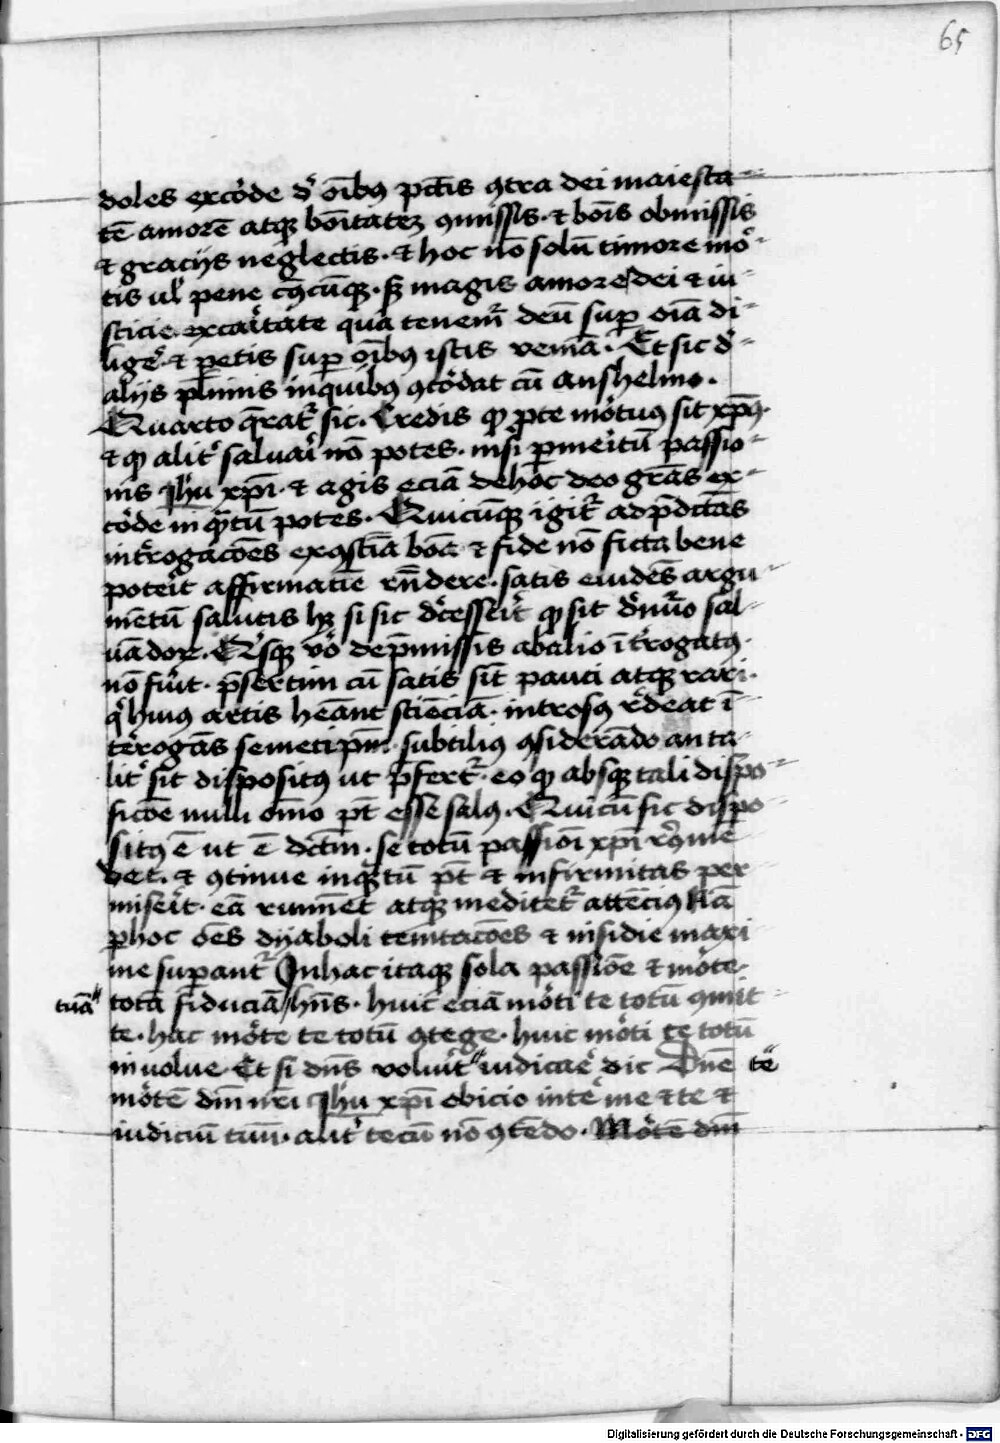 65
doles excorde de oībus pctīs ꝯtra dei maiesta-
tē amorē atqꝫ bonitatē ꝯmissis · et bonīs obmissis
et gracijs neglectis · et hoc nō solū timore mor-
tis ul pene cuiuscūqꝫ · sꝫ magis amore dei et iu-
sticie excaritate qua tenemur deū super oīa di-
ligere · et petis super oībus istis veniā · Et sic de
alijs plurimis inquibus ꝯcordat cū anshelmo ·
Quarto queratur sic · Credis qꝫ pro te mortuus sit xpūs ·
et qꝫ aliter saluari nō potes · nisi permeritū passio-
nis Jhu xpī · et agis eciā dehoc deo grās ex-
corde inquātū potes · Quicūqꝫ igitur adpredictas
introgacōes exꝯstīa bōa et fide nō ficta bene
poterit affirmatie rn̄dere · satis euidēs argu-
mētū salutis hꝫ si sic decesserit qꝫ sit de nuo sal-
uandorꝫ · Quisqꝫ vero depremissis abalio īterogatus ·
nō fuerit · presertim cū satis sīt pauci atqꝫ rari ·
qui huius artis heant scīēciā · introrsus redeat ī-
terogās semetipm̄ · subtilius ꝯsiderādo an ta-
liter sit dispositus ut prefertur · eo qꝫ absqꝫ tali dispo-
sicōe nulli omnino pt esse salus · Quicūqꝫ sic dispo-
situs ē ut ē dctm̄ · se totū passioni xpī
det · et ꝯtinue inquātū pt et infirmitas per
miserit · eā ruminet atqꝫ meditetur attēcius Nā
perhoc oēs dyaboli temtacōes et insidie maxi
me superantur Inhac itaqꝫ sola passiōe et morte ·
tuā totā fiduciā hn̄s · huic eciā morti te totū ꝯmit-
te · hac morte te totū ꝯtege · huic morti te totū
inuolue Et si dn̄s voluerit iudicare dic Dn̄e tē
mortē dn̄i nri Jhu xpī obicio inter me et te et
iudiciū tuū · aliter tecū nō ꝯtēdo · Mortē dn̄i
Digitalisierung gefördert durch die Deutsche Forschungsgemeinschaft - DFG